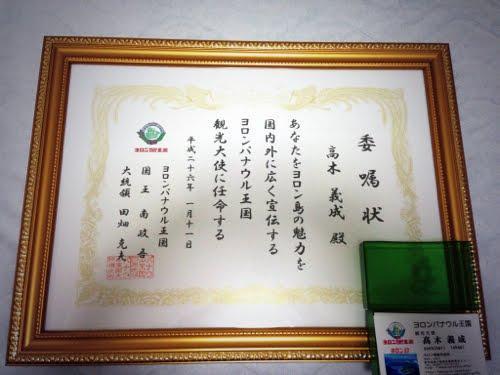 委嘱状
高木 義成 殿
あなたをヨロン島の魅力を
国内外に広く宣伝する
ヨロンパナウル王国
観光大使に任命する
平成二十六年 一月十一日
ヨロンパナウル王国
国王 南政吾
大統領 田畑 克夫
ヨロンパナウル王国
観光大使
高木 義成